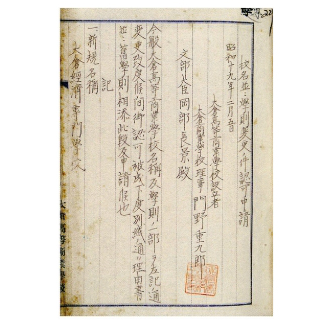 校名並ニ學則変更ノ件認可申請
昭和十九年二月五日
大倉高等商業學校設立者
大倉商業學校理事 門野重九郎
文部大臣岡部長景殿
今般大倉高等商業學校名稱及學則ノ一部ヲ左記ノ通
変更致度候間御認可被成下度別紙ノ通リ理由書
並ニ舊學則相添此段及申請候也
記
一、新規名稱
大倉經濟專門學校